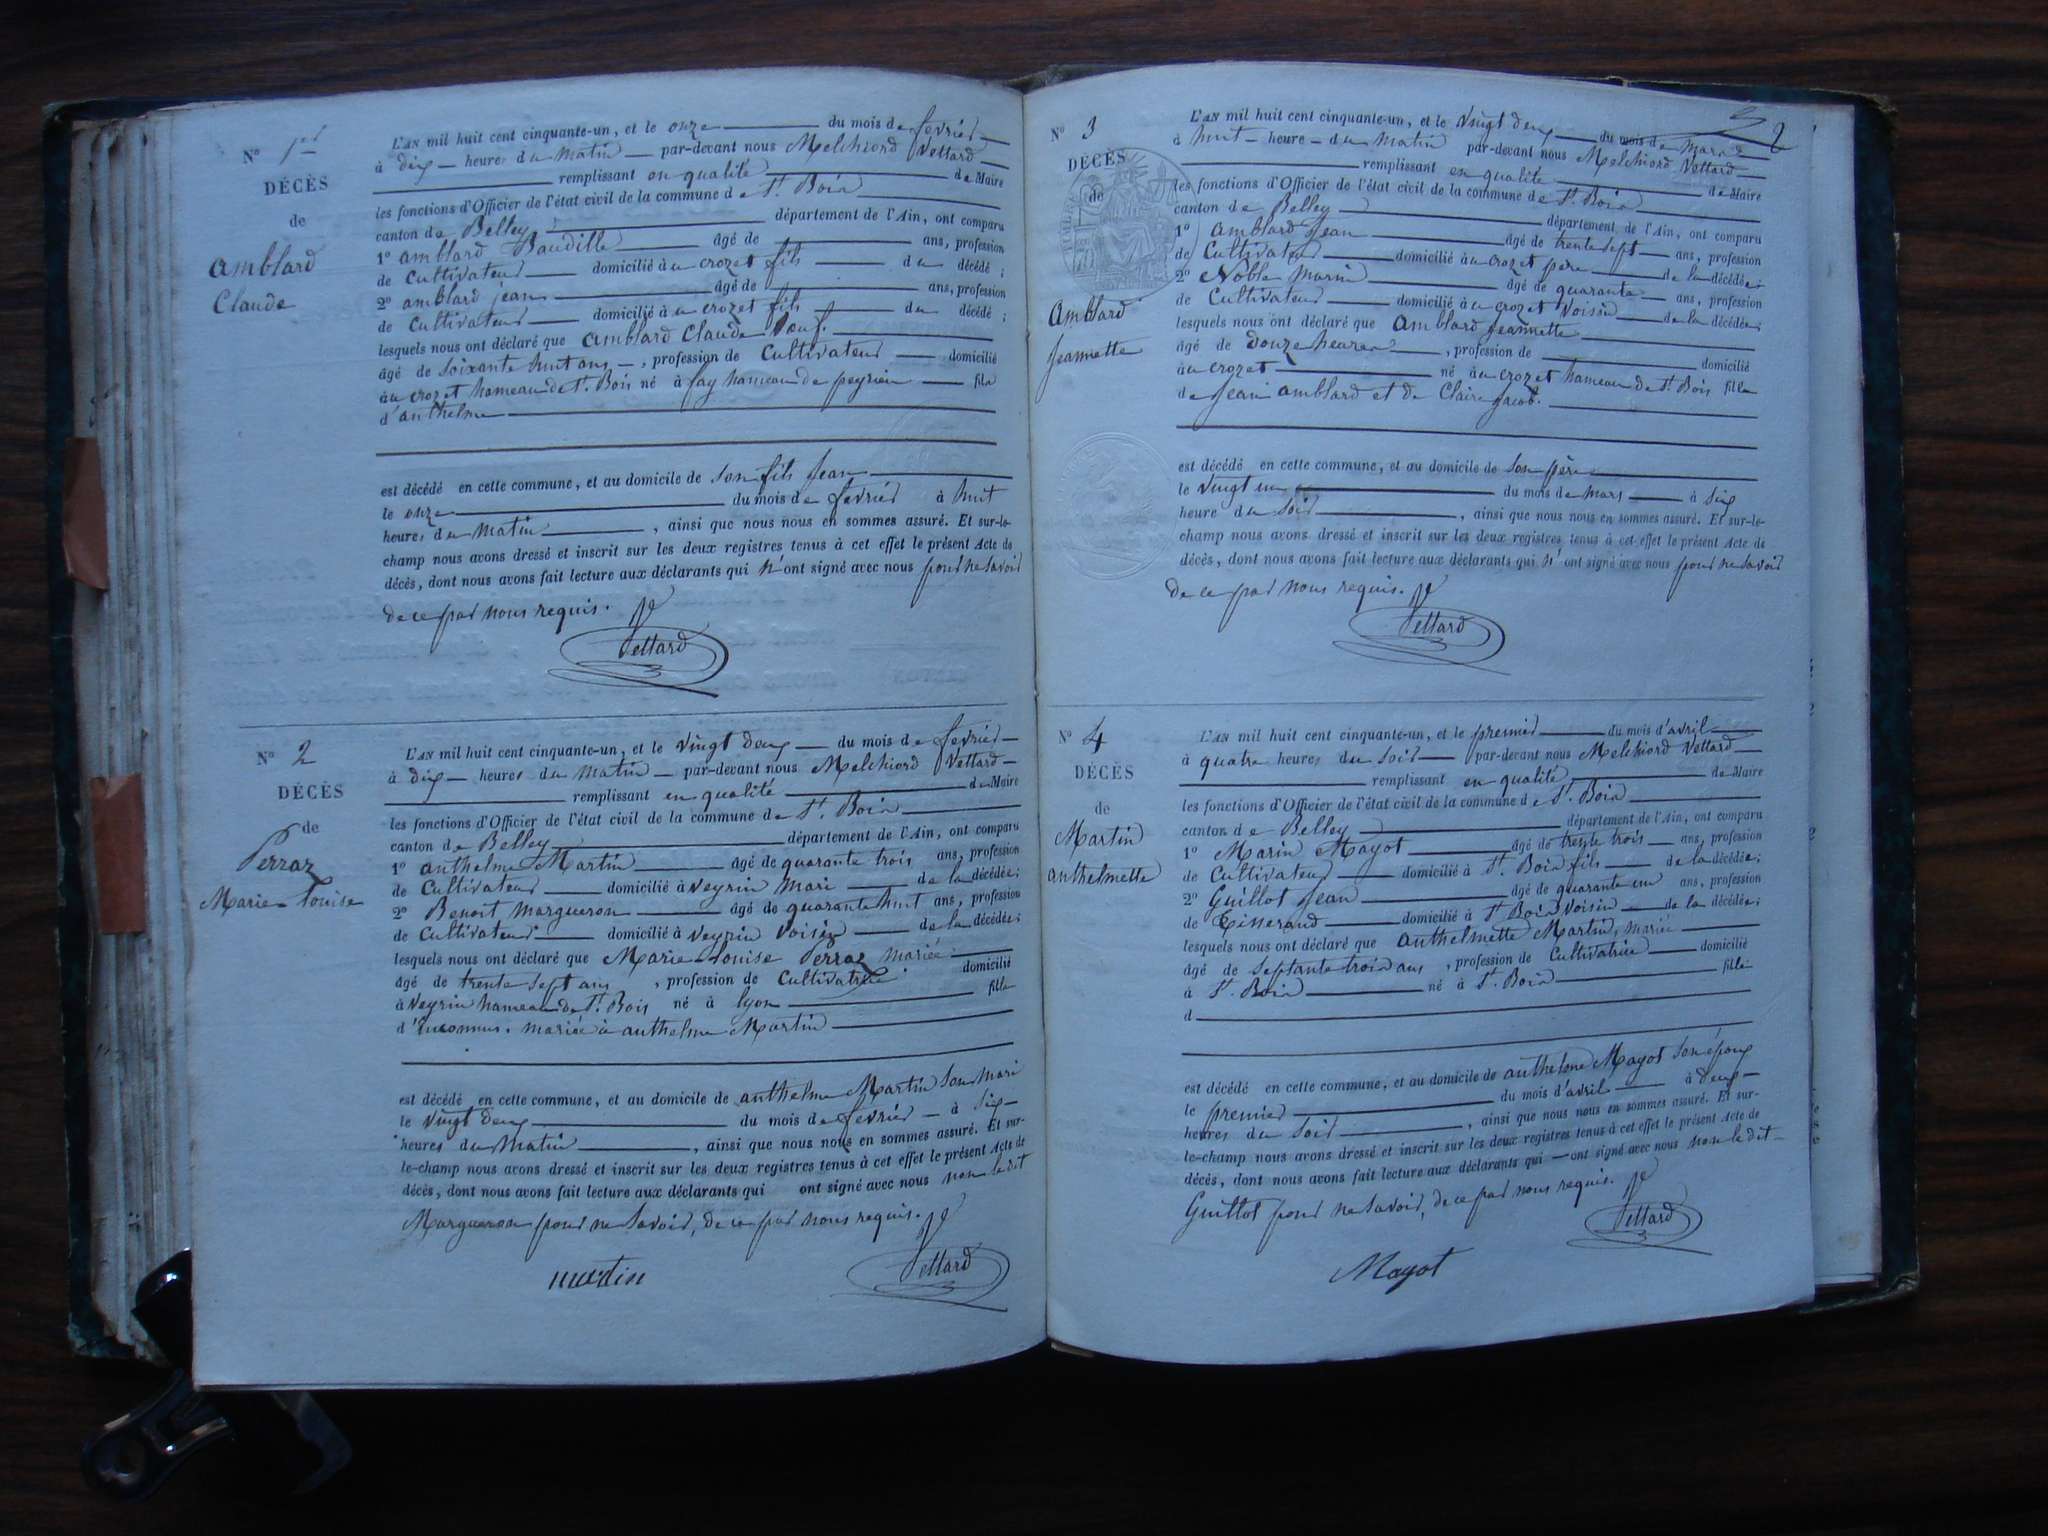 N° 1er
DÉCÈS
de
Amblard
Claude
L'AN mil huit cent cinquante-un, et le onze du mois de fevrier
à dix heures du matin par-devant nous Melchiord Vettard
remplissant en qualité de Maire
les fonctions d'Officier de l'état civil de la commune de St. Bois
canton de Belley département de l'Ain, ont comparu
1° amblard Baudille âgé de ans, profession
de Cultivateur domicilié àu crozet fils du décédé ;
2° amblard jean âgé de ans, profession
de Cultivateur domicilié àu crozet fils du décédé ;
lesquels nous ont déclaré que amblard Claude veuf.
âgé de soixante huit ans , profession de Cultivateur domicilié
àu crozet hameau de St. Bois né à fay hameau de peyrieu fils
d'anthelme
est décédé en cette commune, et au domicile de son fils Jean
le onze du mois de fevrier à huit
heures du matin , ainsi que nous nous en sommes assuré. Et sur-le-
champ nous avons dressé et inscrit sur les deux registres tenus à cet effet le présent Acte de
décès, dont nous avons fait lecture aux déclarants qui n'ont signé avec nous pour ne savoir
de ce par nous requis.
Vettard
N° 2
DÉCÈS
de
Perraz
Marie Louise
L'AN mil huit cent cinquante-un, et le vingt deux du mois de fevrier
à dix heures du matin par-devant nous Melchiord Vettard
remplissant en qualité de Maire
les fonctions d'Officier de l'état civil de la commune de St. Bois
canton de Belley département de l'Ain, ont comparu
1° anthelme Martin âgé de quarante trois ans, profession
de Cultivateur domicilié à veyrin mari de la décédée;
2° Benoit Margueron âgé de quarante huit ans, profession
de Cultivateur domicilié à veyrin voisin de la décédée;
lesquels nous ont déclaré que Marie Louise Perraz mariée
âgé de trente sept ans , profession de Cultivatrice domicilié
à veyrin hameau de St. Bois né à lyon fille
d'Inconnus. mariée à anthelme Martin
est décédé en cette commune, et au domicile de anthelme Martin son mari
le vingt deux du mois de fevrier à six
heures du matin , ainsi que nous nous en sommes assuré. Et sur-
le-champ nous avons dressé et inscrit sur les deux registres tenus à cet effet le présent Acte de
décès, dont nous avons fait lecture aux déclarants qui ont signé avec nous non le dit
Margueron pour ne savoir, de ce par nous requis.
martin
Vettard
2
N° 3
DÉCÈS
de
Amblard
Jeannette
L'AN mil huit cent cinquante-un, et le vingt deux du mois de mars
à huit heure du matin par-devant nous Melchiord Vettard
remplissant en qualité de Maire
les fonctions d'Officier de l'état civil de la commune de St. Bois
canton de Belley département de l'Ain, ont comparu
1° amblard Jean âgé de trente sept ans, profession
de Cultivateur domicilié àu crozet père de la décédée;
2° Noble Marin âgé de quarante ans, profession
de Cultivateur domicilié àu crozet voisin de la décédée;
lesquels nous ont déclaré que Amblard Jeannette
âgé de douze heures , profession de domicilié
àu crozet né àu crozet hameau de St. Bois fille
de Jean amblard et de Claire jacob.
est décédé en cette commune, et au domicile de son père
le vingt un du mois de mars à six
heure du soir , ainsi que nous nous en sommes assuré. Et sur-le-
champ nous avons dressé et inscrit sur les deux registres tenus à cet effet le présent Acte de
décès, dont nous avons fait lecture aux déclarants qui n'ont signé avec nous pour ne savoir
de ce par nous requis.
Vettard
N° 4
DÉCÈS
de
Martin
anthelmette
L'AN mil huit cent cinquante-un, et le premier du mois d'avril
à quatre heures du soir par-devant nous Melchiord Vettard
remplissant en qualité de Maire
les fonctions d'Officier de l'état civil de la commune de St. Bois
canton de Belley département de l'Ain, ont comparu
1° Marin Mayot âgé de trente trois ans, profession
de Cultivateur domicilié à St. Bois fils de la décédée;
2° Guillot Jean âgé de quarante un ans, profession
de Tisserand domicilié à St. Bois voisin de la décédée;
lesquels nous ont déclaré que anthelmette Martin, mariée
âgé de septante trois ans , profession de Cultivatrice domicilié
à St. Bois né à St. Bois fille
d
est décédé en cette commune, et au domicile de anthelme Mayot son époux
le premier du mois d'avril à deux
heures du soir , ainsi que nous nous en sommes assuré. Et sur-
le-champ nous avons dressé et inscrit sur les deux registres tenus à cet effet le présent Acte de
décès, dont nous avons fait lecture aux déclarants qui ont signé avec nous non le dit
Guillot pour ne savoir, de ce par nous requis.
Vettard
Mayot